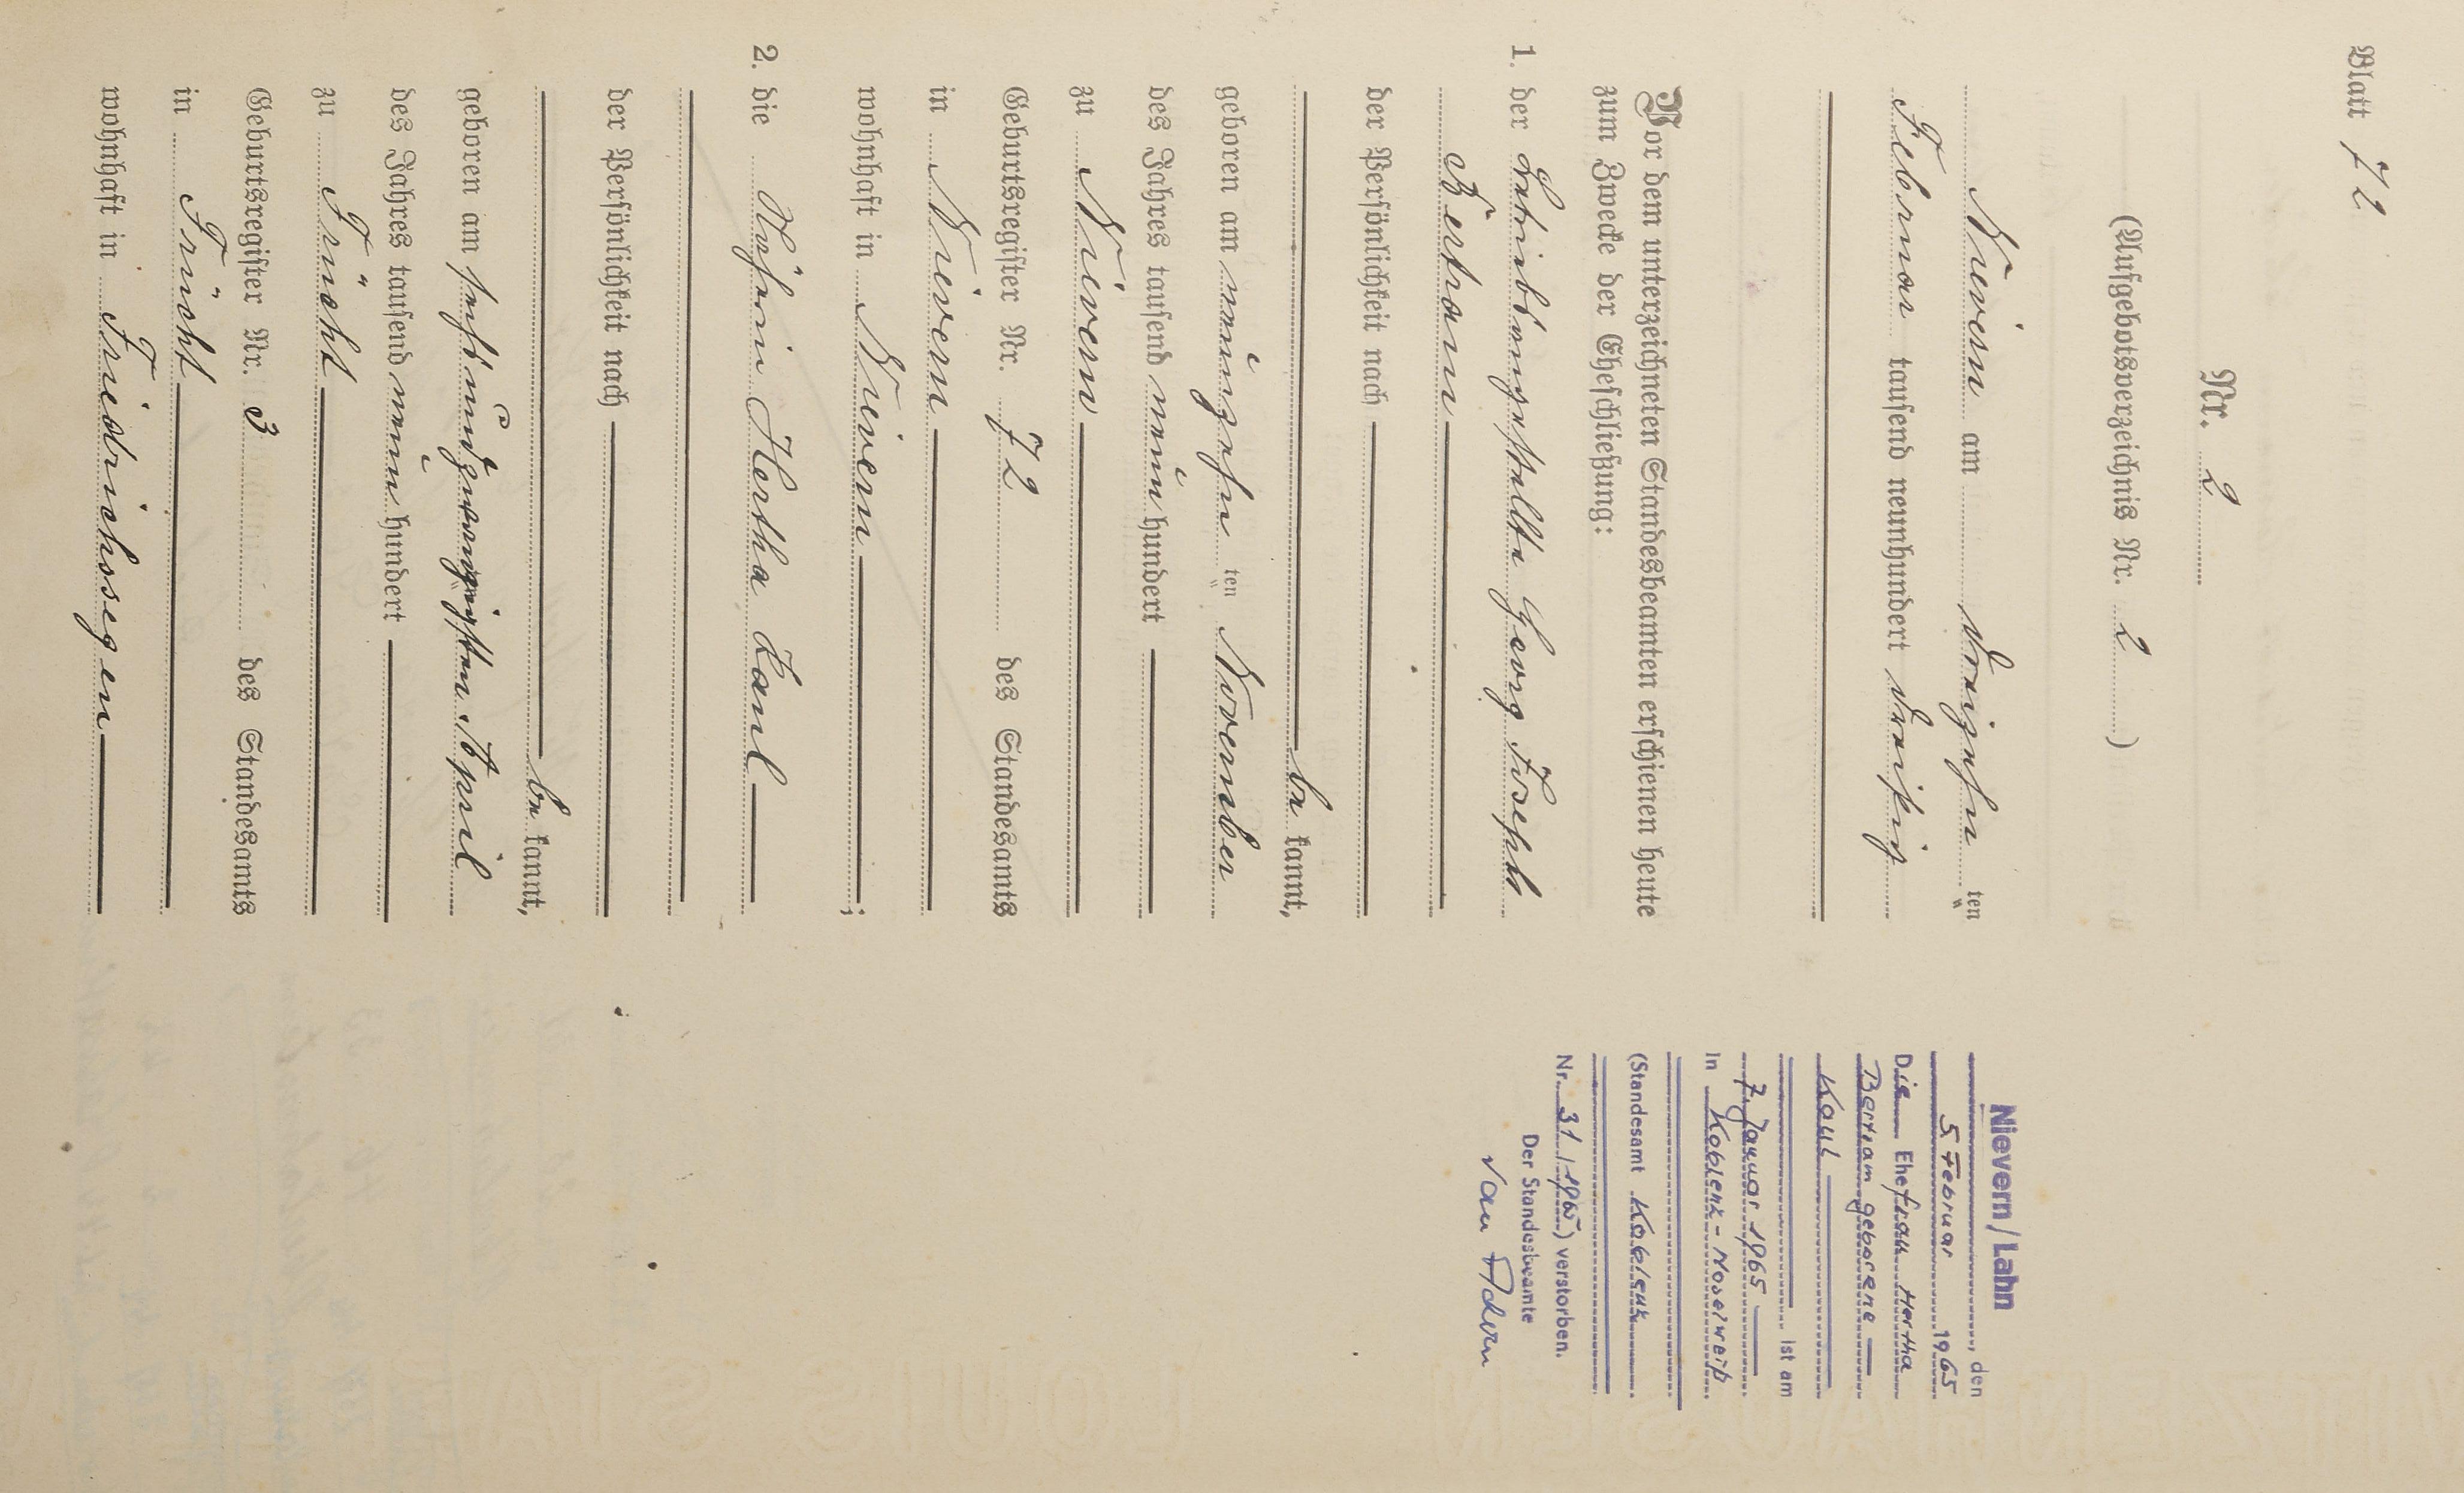 Blatt 72
Nr. 2
(Aufgebotsverzeichnis Nr. 2)
Nievern am dreizehn ten
Februar tausend neunhundert dreißig
Vor dem unterzeichneten Standesbeamten erschienen heute
zum Zwecke der Eheschließung:
1. der Betriebsangestellte Georg Joseph
Bertram
der Persönlichkeit nach
be kannt,
geboren am neunzehn ten November
des Jahres tausend neun hundert
zu Nievern
Geburtsregister Nr. 72 des Standesamts
in Nievern
wohnhaft in Nievern ;
2. die Näherin Hertha Kaul
der Persönlichkeit nach
be kannt,
geboren am sechsundzwanzigsten April
des Jahres tausend neun hundert
zu Frücht
Geburtsregister Nr. 3 des Standesamts
in Frücht
wohnhaft in Friedrichssegen
Nievern/Lahn
, den
5 Februar 1965
Die Ehefrau Hertha
Bertram geborene
Kaul
ist am
7. Januar 1965
in Koblenz-Moselweiß
(Standesamt Koblenz
Nr. 31/1965) verstorben.
Der Standesbeamte